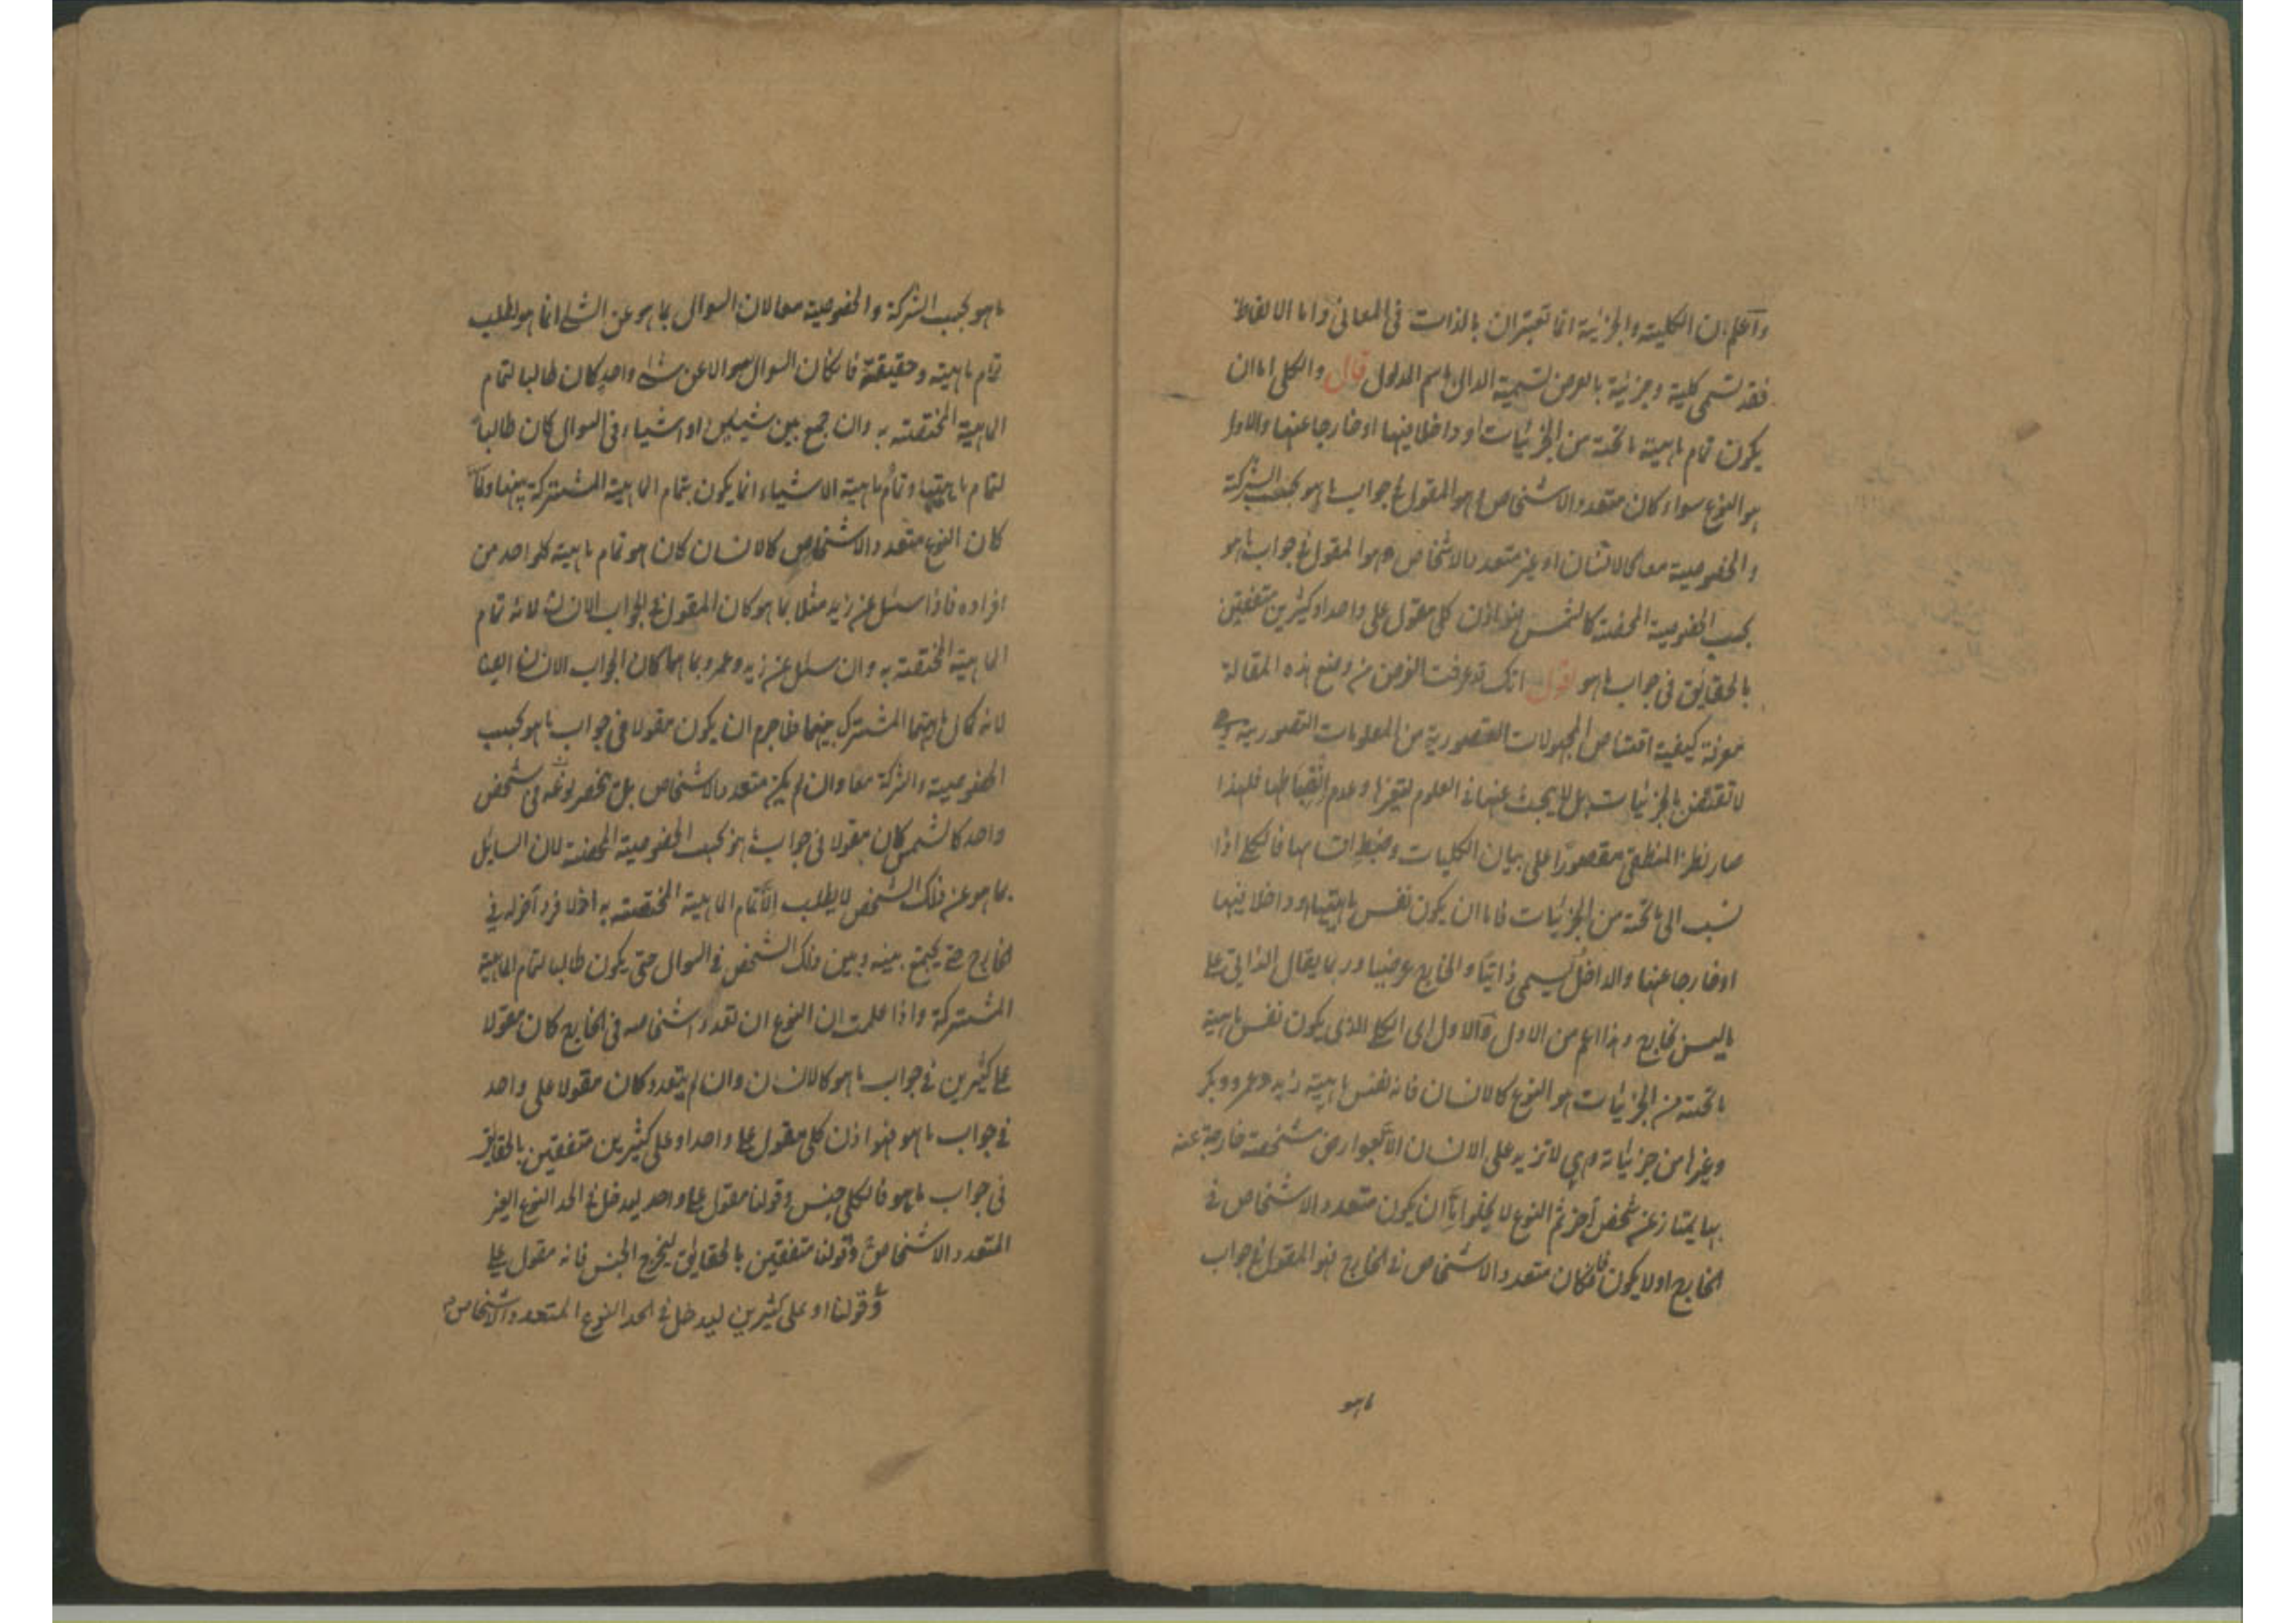 واعلم ان الكلية والجزئية انما تعتبران بالذات في المعاني واما الالفاظ
فقد تسمى كلية وجزئية بالعرض تسمية الدال باسم المدلول قال والكلي اما ان
يكون تمام ماهية ما تحته من الجزئيات او داخلا فيها او خارجا عنها والاول
هو النوع سواء كان متعدد الاشخاص و هو المقول في جواب ما هو بحسب الشركة
والخصوصية معا كالانسان او غير متعدد الاشخاص و هو المقول في جواب ما هو
بحسب الخصوصية المحضة كالشمس فهو اذن كلي مقول على واحد او كثيرين متفقين
بالحقايق في جواب ما هو نقول انك قد عرفت الغرض من وضع هذه المقالة
معرفة كيفية اقتناص المجهولات التصورية من المعلومات التصورية وهي
لا تقتنص بالجزئيات بل لا يبحث عنها في العلوم لتغيرها وعدم انضباطها فلهذا
صار نظر المنطقي مقصورا على بيان الكليات وضبط اقسامها فالكلي اذا
نسب الى ما تحته من الجزئيات فاما ان يكون نفس ماهيتها او داخلا فيها
او خارجا عنها والداخل يسمى ذاتيا والخارج عرضيا وربما يقال الذاتي على
ما ليس بخارج وهذا اعم من الاول فالاول اى الكلي الذى يكون نفس ماهية
ما تحته من الجزئيات هو النوع كالانسان فانه نفس ماهية زيد وعمرو وبكر
وغيرها من جزئياته وهي لا تزيد على الانسان الا بعوارض مشخصة خارجة عنه
بها يمتاز عن شخص آخر ثم النوع لا يخلوا اما ان يكون متعدد الاشخاص في
الخارج او لا يكون فان كان متعدد الاشخاص في الخارج فهو المقول في جواب
ما هو
ما هو بحسب الشركة والخصوصية معا لان السوال بما هو عن الشئ انما هو لطلب
تمام ماهيته وحقيقته فان كان السوال سوالا عن شئ واحد كان طالبا لتمام
الماهية المختصة به وان جمع بين شيئين او اشياء في السوال كان طالبا
لتمام ماهيتها وتمام ماهية الاشياء انما يكون بتمام الماهية المشتركة بينها ولما
كان النوع متعدد الاشخاص كالانسان كان هو تمام ماهية كل واحد من
افراده فاذا سئل عن زيد مثلا بما هو كان المقول في الجواب الانسان لانه تمام
الماهية المختصة به وان سئل عن زيد وعمرو بما هما كان الجواب الانسان ايضا
لانه كمال ماهيتهما المشترك بينهما فلا جرم ان يكون مقولا في جواب ما هو بحسب
الخصوصية والشركة معا وان لم يكن متعدد الاشخاص بل ينحصر نوعه في شخص
واحد كالشمس كان مقولا في جواب ما هو بحسب الخصوصية المحضة لان السايل
بما هو عن ذلك الشخص لا يطلب الا تمام الماهية المختصة به اذ لا فرد آخر له في
الخارج حتى يجتمع بينه وبين ذلك الشخص في السوال حتى يكون طالبا لتمام الماهية
المشتركة واذا علمت ان النوع ان تعدد اشخاصه في الخارج كان مقولا
على كثيرين في جواب ما هو كالانسان وان لم يتعدد كان مقولا على واحد
في جواب ما هو فهو اذن كلي مقول على واحد او على كثيرين متفقين بالحقايق
في جواب ما هو فالكلي جنس وقولنا مقول على واحد ليدخل في الحد النوع الغير
المتعدد الاشخاص وقولنا متفقين بالحقايق ليخرج الجنس فانه مقول على
وقولنا او على كثيرين ليدخل في الحد النوع المتعدد الاشخاص